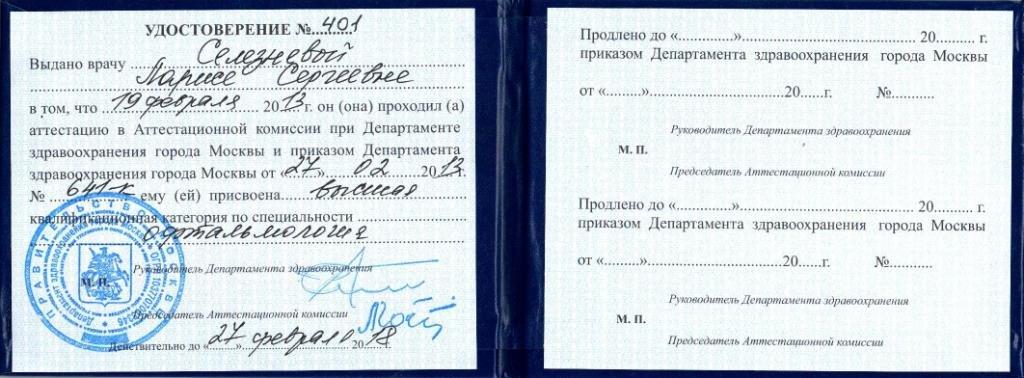 УДОСТОВЕРЕНИЕ № 401
Выдано врачу Селезневой
Ларисе Сергеевне
в том, что 19 февраля 2013 г. он (она) проходил (а)
аттестацию в Аттестационной комиссии при Департаменте
здравоохранения города Москвы и приказом Департамента
здравоохранения города Москвы от «27» 02 2013 г.
№ 641-к ему (ей) присвоена высшая
квалификационная категория по специальности
офтальмология
Руководитель Департамента здравоохранения
М. П.
Председатель Аттестационной комиссии
Действительно до «27» февраля 2018 г.
ПРАВИТЕЛЬСТВО МОСКВЫ
Департамент здравоохранения города Москвы
Продлено до «..............»............................................ 20.......... г.
приказом Департамента здравоохранения города Москвы
от «.........»..................................20......г. №...........
Руководитель Департамента здравоохранения
М. П.
Председатель Аттестационной комиссии
Продлено до «..............»............................................ 20.......... г.
приказом Департамента здравоохранения города Москвы
от «.........»..................................20......г. №...........
Руководитель Департамента здравоохранения
М. П.
Председатель Аттестационной комиссии